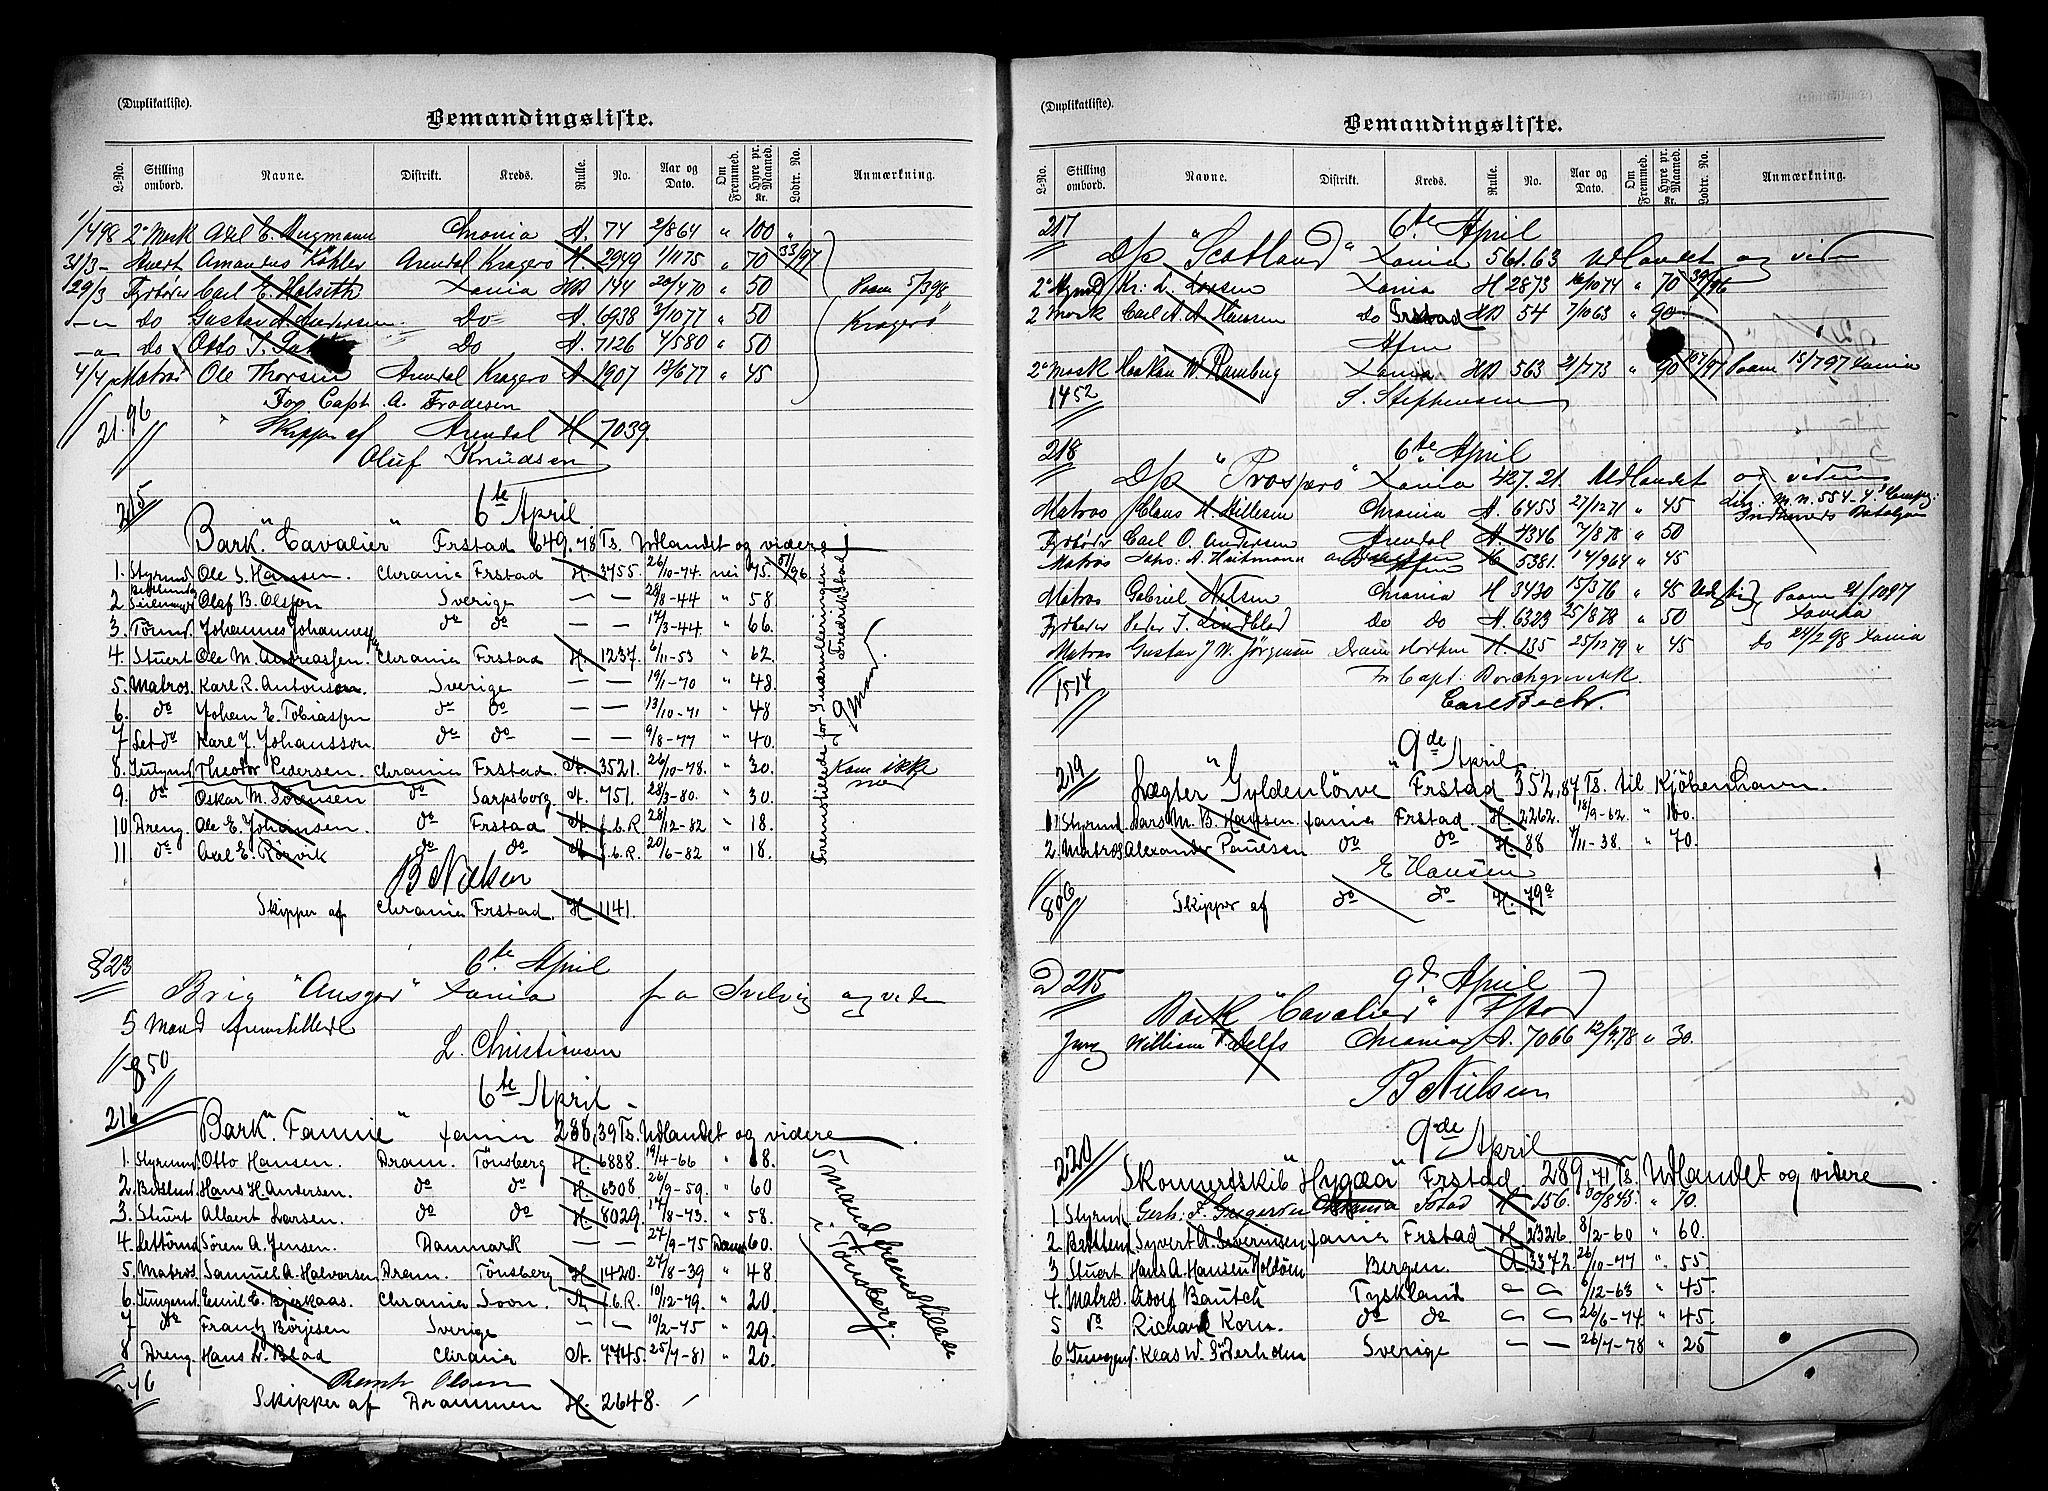 (Duplikatliste).
Bemandingsliste.
L-No. Stilling ombord. Navne. Distrikt. Kreds. Rulle. No. Aar og Dato. Om Fremmed. Hyre pr. Maaned. Kr. Lodtr. No. Anmærkning.
1/4 98 2' Mesk Axel E. Chrania A. 74 2/8 64 " 100 "
31/3 - Stuert Amandus Köhler Arendal Kragerø H. 2949 1/11 75 " 70 33/97
29/3 Fyrbøder Carl E. Halseth Xania HB 144 20/4 70 " 50 Paam 5/3 98
Do Gustav A. Andersen Do A. 6938 3/10 77 " 50 Kragerø
Do Otto T. Do A. 7126 4/5 80 " 50
4/4 Matros Ole Thorsen Arendal Kragerø A 1907 13/6 77 " 45
For Capt. A. Frodesen
21.96 Skipper af Arendal H 7039.
Oluf Knudsen
215 6te April
Bark. "Cavalier" Frstad 649.78 Ts. Udlandet og videre
1. Styrmd Ole S. Hansen. Chrania Frstad H. 3755. 26/10-74. nei 75. 51/96
2 Seilmager Olaf B. Olsson Sverige — — 28/8-44 " 58
3. Tömd. Johannes Johannes do do — — 17/3-44. " 66.
4. Stuert Ole M. Andreassen. Chrania Frstad H. 1237. 6/11-53 " 62.
5. Matros. Karl R. Antonson. Sverige — — 19/1-70 " 48.
6. do Johan E. Tobiassen do do — — 13/10-71 " 48
7 Let do Karl J. Johansson do do — — 9/8-77 " 40.
8. Jungmd Theodor Pedersen. Chrania Frstad. A. 3521. 26/10-78. " 30. Kom ikke med
9. do Oskar M. Sørensen do Sarpsborg A. 751. 28/3-80. " 30.
10 Dreng. Ole E. Johansen. do Frstad A. f.b.R. 28/12-82 " 18.
11 do Axel E. Rørvik do do A f.b.R. 20/6-82 " 18.
Fremstillede for Innrulleringen i Fredrikstad
B Nielsen
Skipper af Chrania Frstad. H 1141.
823 6te April
Brig "Ansgar" Xania fra Svelvig og viden
5 Mand fremstillede
L. Christiansen
850
6te April
216 Bark. "Fannie" Xania 288,39 Ts. Udlandet og videre
1. Styrmd. Otto Hansen. Dram. Tönsberg H. 6888. 19/4-66 " 18.
2. Bestmd. Hans H. Andersen. do do H 6308 26/9-59. " 60
3. Stuert Albert Larsen. do do H 8029. 17/8-73. " 58.
4. Lettömd Sören A. Jensen. Danmark — — 27/9-75 Dansk 60.
5. Matros Samuel A. Halvorsen Dram. Tönsberg H 1420. 27/8-39 " 48
6. Jungmd. Emil E. Bjerkaas. Chrania Soon. A. f.b.R. 10/12-79. " 20.
7 do Frantz Börjesen Sverige — — 10/2-75 " 29.
8 Dreng. Hans L. Blad Chrania A. 7745. 25/7-81 " 20.
5 mand fremstillede i Tönsberg.
Bernt Olsen
Skipper af Drammen H. 2648.
(Duplikatliste).
Bemandingsliste.
L-No. Stilling ombord. Navne. Distrikt. Kreds. Rulle. No. Aar og Dato. Om Fremmed. Hyre pr. Maaned. Kr. Lodtr. No. Anmærkning.
217 6te April
D/s "Scotland" Xania 561.63 Udlandet og viden
2' Styrmd Kr: L. Larsen Xania H 2873 16/10 74 " 70 39/96
2 Mesk Carl A. A Hansen do Frstad HB 54 7/10 63 " 90
Afm
2' Mesk Haakon W. Ramberg Xania HB 563 21/7 73 " 90 107/97 Paam 15/7 97 Xania
1452 S. Stephensen
218 6te April
D/s "Prospero" Xania 427.21. Udlandet og viden
Matros Claus H. Nillesen Chrania A. 6453 27/12 71 " 45
Fyrbøder Carl O. Andersen Arendal A. 4346 7/8 78 " 50
Matros A. Heitmann H 5381. 14/9 64 " 45
Matros Gabriel Nilsen Chrania H 3420 15/3 76 " 45 Paam 21/10 97 Xania
Fyrbøder Peder T. Lindblad do do A. 6323 25/8 78 " 50
Matros Gustav J W. Jörgensen Dram Horten H. 135 25/12 79 " 45 do 24/2 98 Xania
1514 Fr Capt. Borchgrevink.
Carl Bech.
9de April
219 Lægter "Gyldenlöve" Frstad 352,87 Ts. til Kjöbenhavn.
1 Styrmd Lars M. B. Hansen. Xania Frstad. H. 2262. 18/9-62. " 100.
2. Matros Alexander Paulsen do do H. 88 4/11-38. " 70.
E Hansen
Skipper af do do H. 79a
D 215 9d. April
Bark "Cavalier" Fstad
Jung William F. Delfs Chrania A. 7066 12/9 78 " 30.
B Nielsen
9de April
220 Skonnertskib "Hygæa" Frstad 289,71 Ts. Udlandet og videre
1 Styrmd. Gerh: F. Gregersen Chrania Fstad H 156. 20/8 45. " 70.
2. Bestmd. Syvert A. Severinsen Xania Frstad H. 2326. 8/2-60 " 60.
3 Stuert Hans A. Hansen Bergen. A 3372. 26/10-77 " 55
4. Matros. Adolf Bautch Tyskland — — 6/12-63 " 45.
5 do Richard Korn. do do — — 26/6-74. " 45.
6. Jungmd. Klas W. Söderholm Sverige — — 26/7-78 " 25